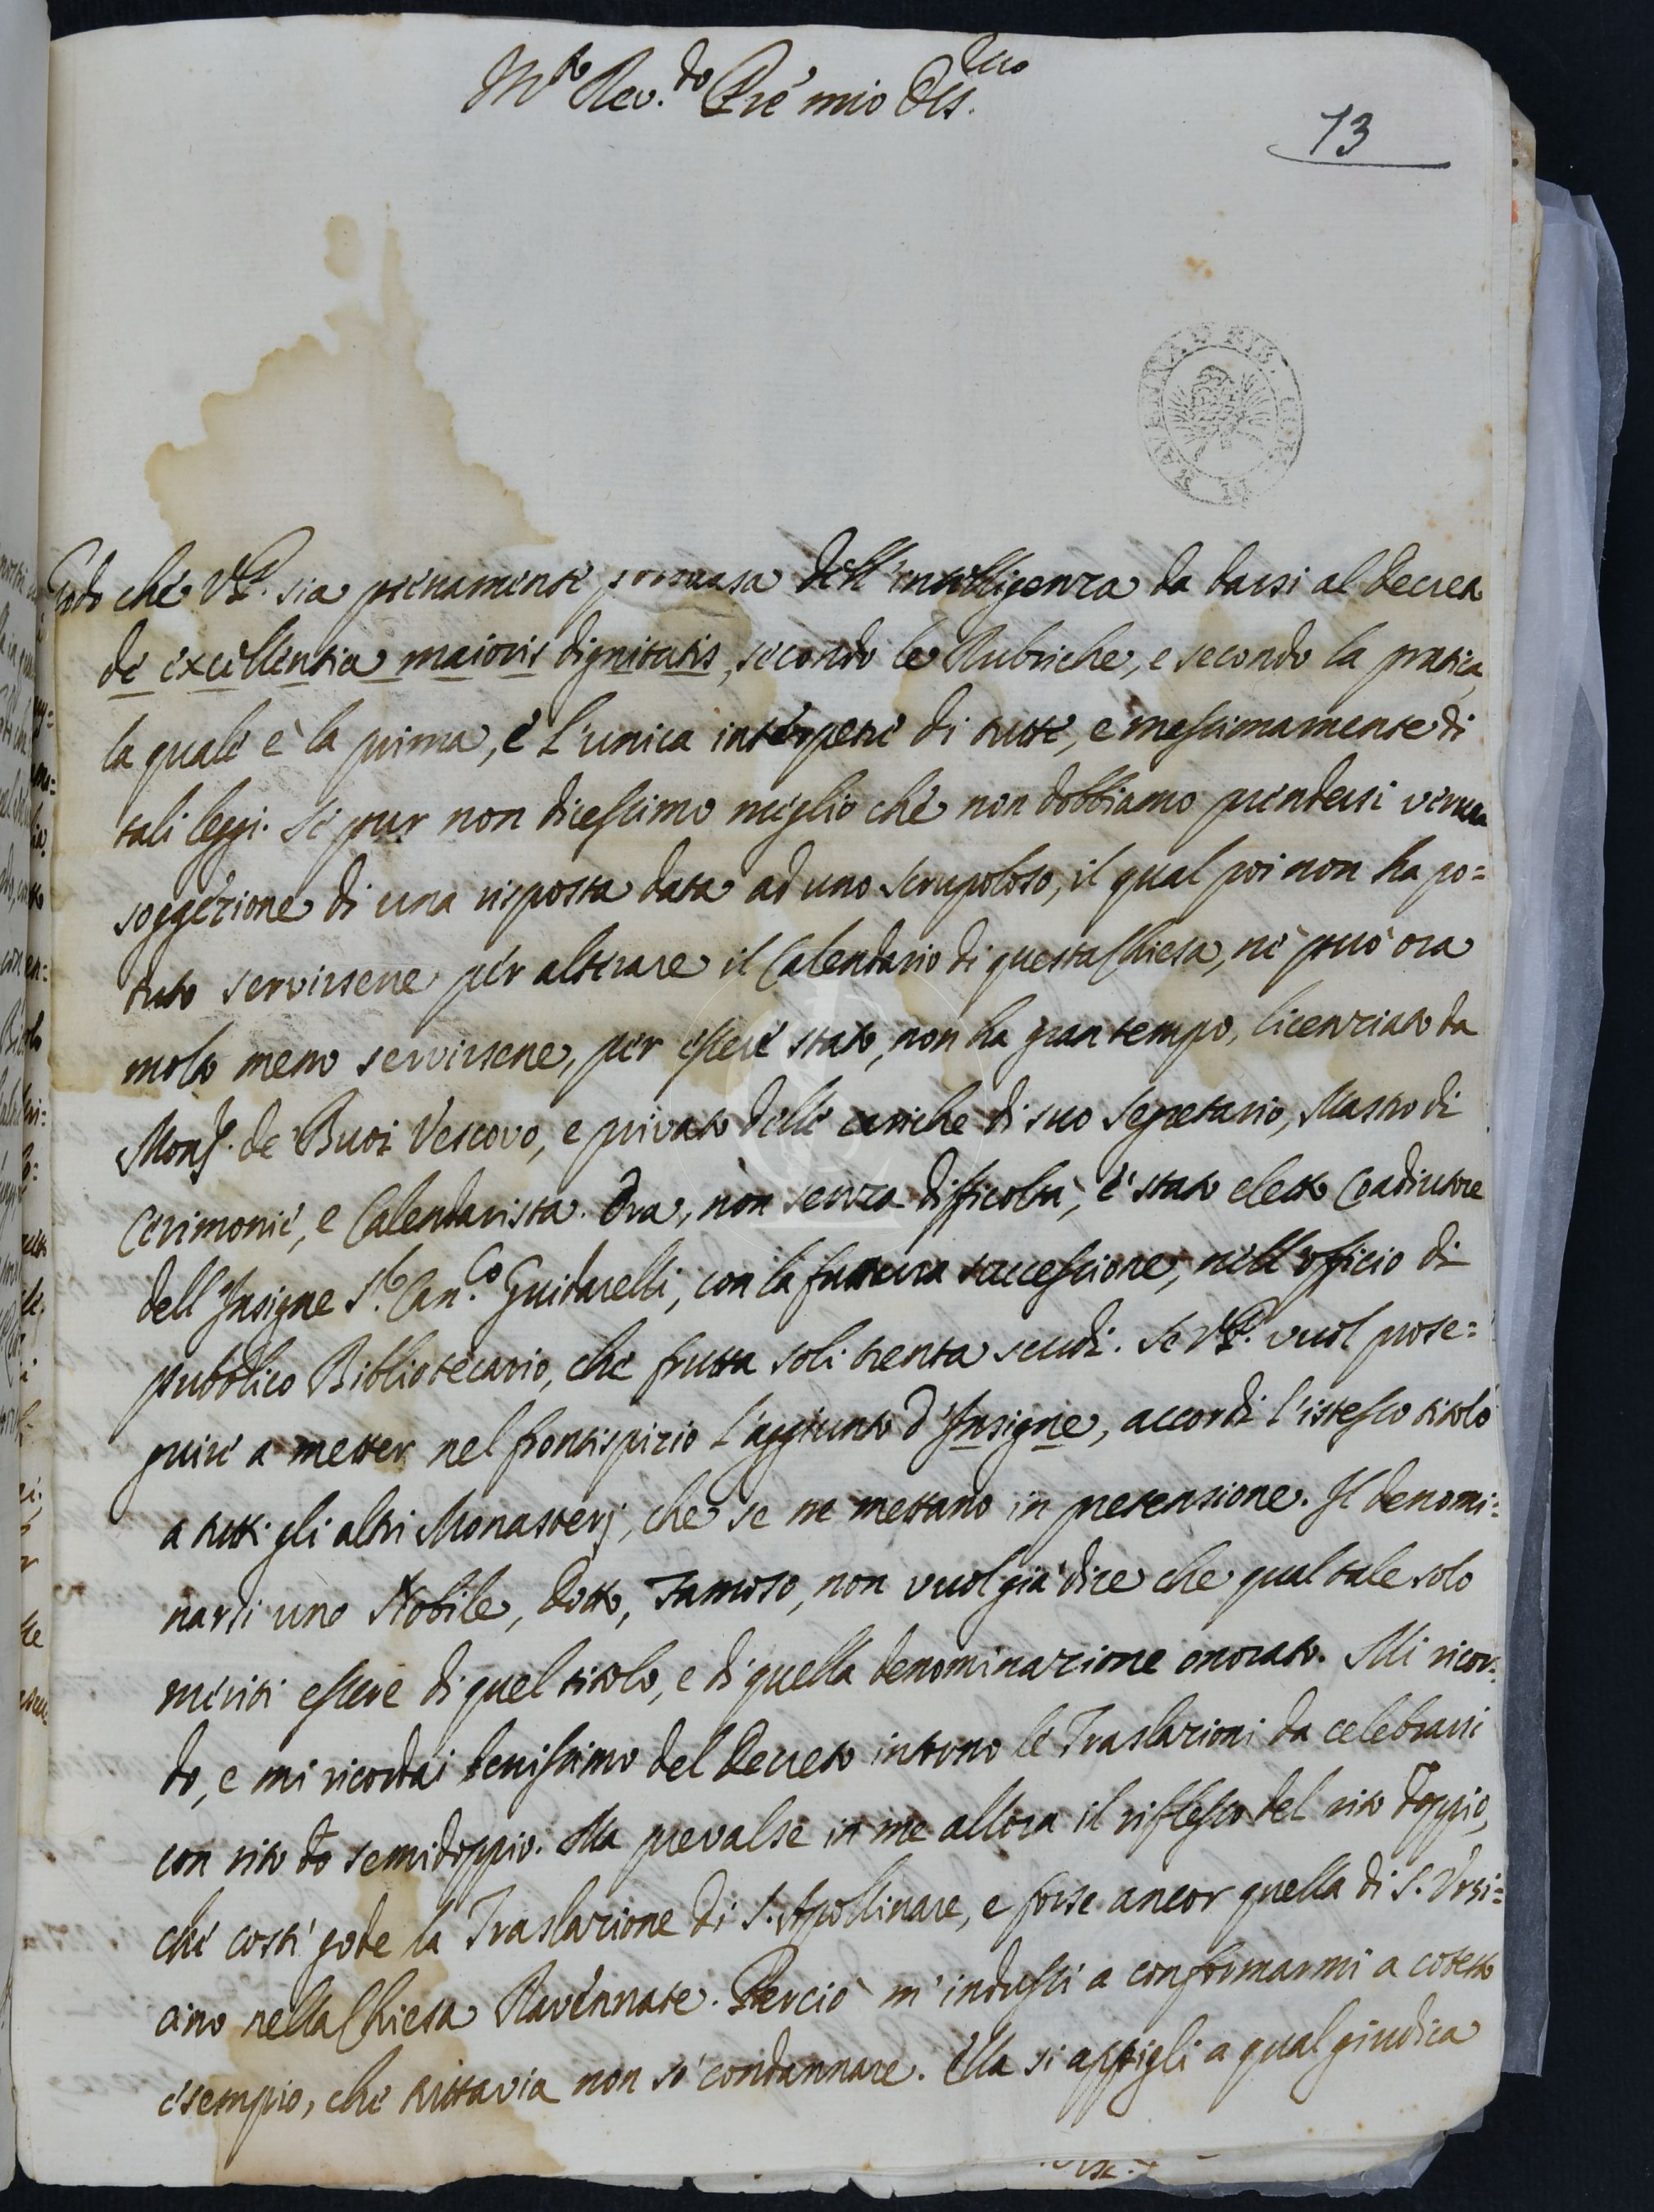 M.to Rev.do Pre' mio Oss.mo
73
Godo che V.P. sia pienamente persuasa dell'intelligenza da darsi al decreto
de excellentia maioris dignitatis, secondo le Rubriche, e secondo la pratica,
la quale è la prima, e l'unica interpetre di tutte, e messimamente di
tali leggi. Se pur non dicessimo meglio che non dobbiamo prendersi veruna
soggezione di una risposta data ad uno scrupoloso, il qual poi non ha po=
tuto servirsene per alterare il Calendario di questa Chiesa, nè può ora
molto meno servirsene, per essere stato, non ha gran tempo, licenziato da
Mons.r de' Buoi Vescovo, e privato delle cariche di suo Segretario, Mastro di
Cerimonie, e Calendarista. Ora, non senza difficoltà, è stato eletto Coadiutore
dell'Insigne S.r Can.co Guidarelli, con la futura successione, nell'officio di
pubblico Bibliotecario, che frutta soli trenta scudi. Se V.P. vuol prose=
guire a metter nel frontispizio l'aggiunto d'Insigne, accordi l'istesso titolo
a tutti gli altri Monasterj, che se ne mettano in pretensione. Il denomi=
narsi uno Nobile, Dotto, Famoso, non vuol già dire che qual tale solo
meriti essere di quel titolo, e di quella denominazione onorato. Mi ricor=
do, e mi ricordai benissimo del Decreto intorno le Traslazioni da celebrarsi
con rito do semidoppio. Ma prevalse in me allora il riflesso del rito doppio,
che costì gode la Traslazione di S. Apollinare, e forse ancor quella di S. Ursi=
cino nella Chiesa Ravennate. Perciò m'indussi a conformarmi a cotesto
esempio, che tuttavia non sò condannare. Ella si appigli a qual giudica